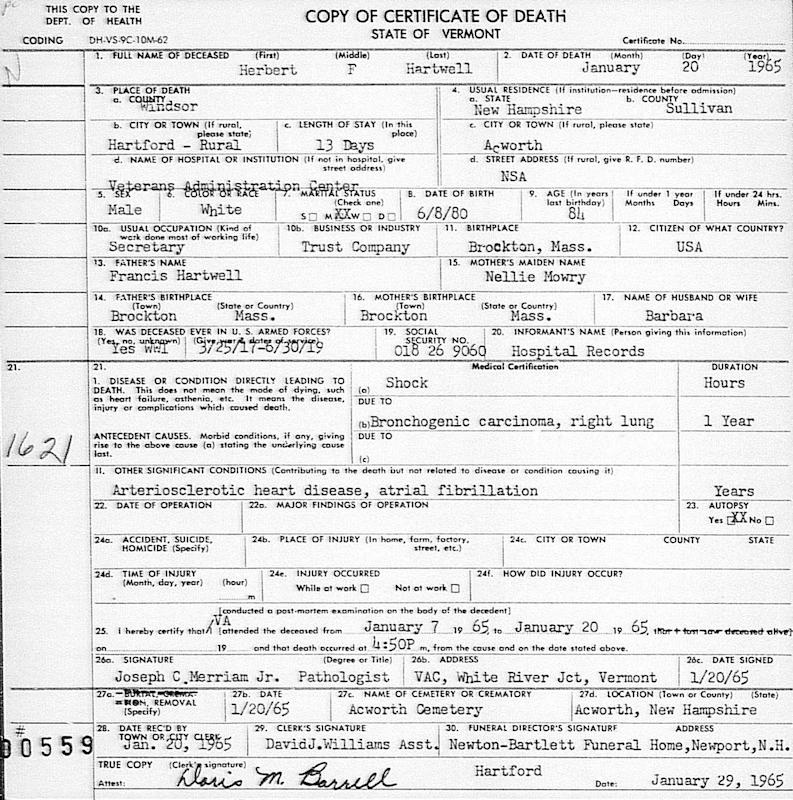 THIS COPY TO THE
DEPT. OF HEALTH
COPY OF CERTIFICATE OF DEATH
STATE OF VERMONT
CODING DH-VS-9C-10M-62
Certificate No.
N
1. FULL NAME OF DECEASED (First) (Middle) (Last) 2. DATE OF DEATH (Month) (Day) (Year)
Herbert F Hartwell January 20 1965
3. PLACE OF DEATH 4. USUAL RESIDENCE (If institution—residence before admission)
a. COUNTY a. STATE b. COUNTY
Windsor New Hampshire Sullivan
b. CITY OR TOWN (If rural, please state) c. LENGTH OF STAY (In this place) c. CITY OR TOWN (If rural, please state)
Hartford - Rural 13 Days Acworth
d. NAME OF HOSPITAL OR INSTITUTION (If not in hospital, give street address) d. STREET ADDRESS (If rural, give R. F. D. number)
Veterans Administration Center NSA
5. SEX 6. COLOR OR RACE 7. MARITAL STATUS (Check one) 8. DATE OF BIRTH 9. AGE (In years last birthday) If under 1 year Months Days If under 24 hrs. Hours Mins.
Male White S □ M XX W □ D □ 6/8/80 84
10a. USUAL OCCUPATION (Kind of work done most of working life) 10b. BUSINESS OR INDUSTRY 11. BIRTHPLACE 12. CITIZEN OF WHAT COUNTRY?
Secretary Trust Company Brockton, Mass. USA
13. FATHER'S NAME 15. MOTHER'S MAIDEN NAME
Francis Hartwell Nellie Mowry
14. FATHER'S BIRTHPLACE (Town) (State or Country) 16. MOTHER'S BIRTHPLACE (Town) (State or Country) 17. NAME OF HUSBAND OR WIFE
Brockton Mass. Brockton Mass. Barbara
18. WAS DECEASED EVER IN U. S. ARMED FORCES? (Yes, no, unknown) (Give war & dates of service) 19. SOCIAL SECURITY NO. 20. INFORMANT'S NAME (Person giving this information)
Yes WWI 3/25/17-6/30/19 018 26 9060 Hospital Records
21. 21. Medical Certification DURATION
1. DISEASE OR CONDITION DIRECTLY LEADING TO
DEATH. This does not mean the mode of dying, such
as heart failure, asthenia, etc. It means the disease,
injury or complications which caused death.
(a) Shock Hours
DUE TO
(b) Bronchogenic carcinoma, right lung 1 Year
1621
ANTECEDENT CAUSES. Morbid conditions, if any, giving
rise to the above cause (a) stating the underlying cause
last.
DUE TO
(c)
11. OTHER SIGNIFICANT CONDITIONS (Contributing to the death but not related to disease or condition causing it)
Arteriosclerotic heart disease, atrial fibrillation Years
22. DATE OF OPERATION 22a. MAJOR FINDINGS OF OPERATION 23. AUTOPSY
Yes XX No □
24a. ACCIDENT, SUICIDE, HOMICIDE (Specify) 24b. PLACE OF INJURY (In home, farm, factory, street, etc.) 24c. CITY OR TOWN COUNTY STATE
24d. TIME OF INJURY (Month, day, year) (hour) m 24e. INJURY OCCURRED 24f. HOW DID INJURY OCCUR?
While at work □ Not at work □
[conducted a post-mortem examination on the body of the decedent]
VA
25. I hereby certify that I [attended the deceased from January 7 19 65 to January 20 19 65, (that I last saw deceased alive)
on 19 and that death occurred at 4:50P m, from the cause and on the date stated above.
26a. SIGNATURE (Degree or Title) 26b. ADDRESS 26c. DATE SIGNED
Joseph C Merriam Jr. Pathologist VAC, White River Jct, Vermont 1/20/65
27a. BURIAL, CREMA-TION, REMOVAL (Specify) 27b. DATE 27c. NAME OF CEMETERY OR CREMATORY 27d. LOCATION (Town or County) (State)
1/20/65 Acworth Cemetery Acworth, New Hampshire
28. DATE REC'D BY TOWN OR CITY CLERK 29. CLERK'S SIGNATURE 30. FUNERAL DIRECTOR'S SIGNATURE ADDRESS
Jan. 20, 1965 DavidJ.Williams Asst. Newton-Bartlett Funeral Home,Newport,N.H.
#
00559
TRUE COPY (Clerk's signature)
Attest: Doris M. Barrell Hartford Date: January 29, 1965